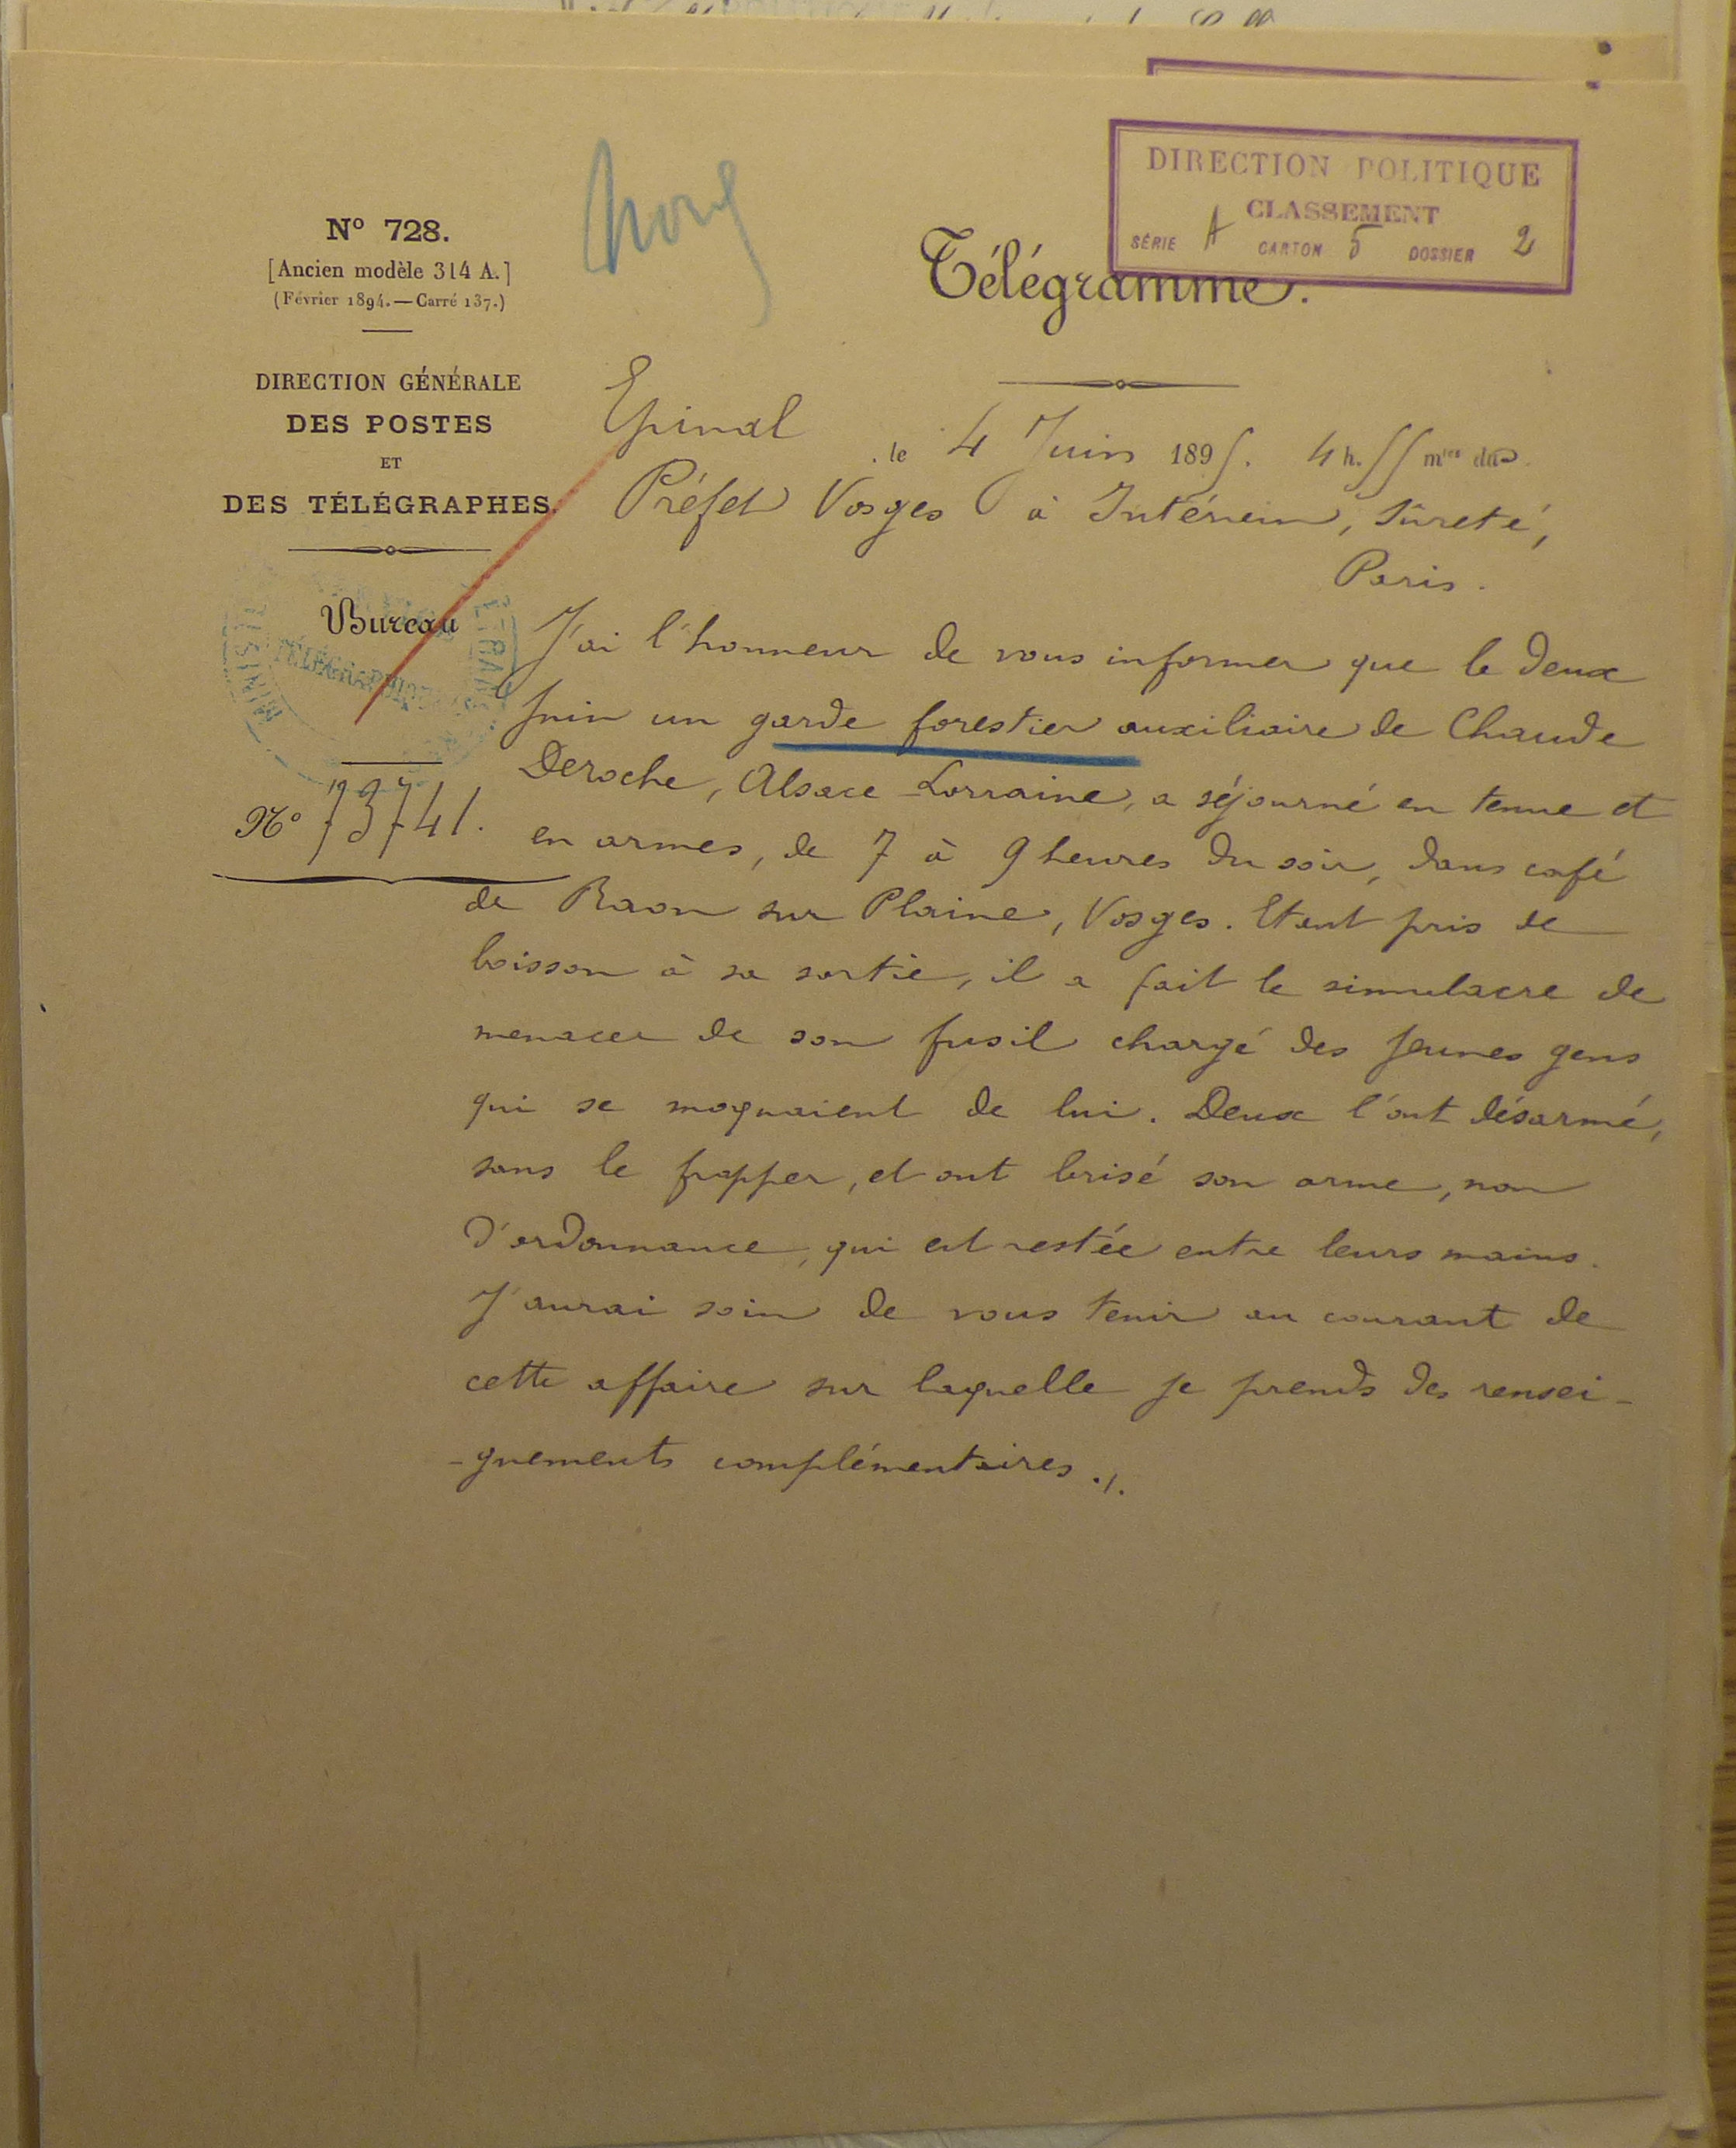 DIRECTION POLITIQUE
CLASSEMENT
SÉRIE A CARTON 5 DOSSIER 2
N° 728.
[Ancien modèle 314 A.]
(Février 1894.—Carré 137.)
Télégramme.
DIRECTION GÉNÉRALE
DES POSTES
ET
DES TÉLÉGRAPHES.
Bureau
TÉLÉGRAPHIQUE
N° 73741.
Epinal, le 4 Juin 1895. 4 h. 55 mes du s
Préfet Vosges à Intérieur, Sûreté,
Paris.
J'ai l'honneur de vous informer que le deux
Juin un garde forestier auxiliaire de Chaude
Deroche, Alsace Lorraine, a séjourné en tenue et
en armes, de 7 à 9 heures du soir, dans café
de Raon sur Plaine, Vosges. Etant pris de
boisson à sa sortie, il a fait le simulacre de
menacer de son fusil chargé des jeunes gens
qui se moquaient de lui. Deux l'ont désarmé,
sans le frapper, et ont brisé son arme, non
d'ordonnance, qui est restée entre leurs mains.
J'aurai soin de vous tenir au courant de
cette affaire sur laquelle je prends des rensei-
-gnements complémentaires ./.